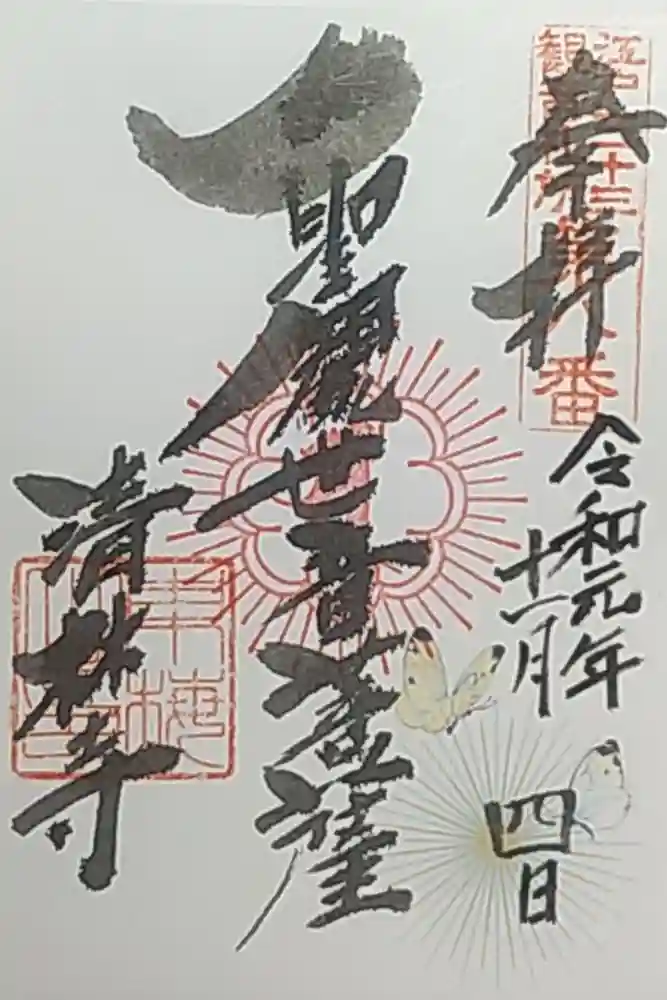 奉拝
江戸三十三
観音札所
第八番
令和元年
十一月
四日
聖観世音菩薩
清林寺
東梅